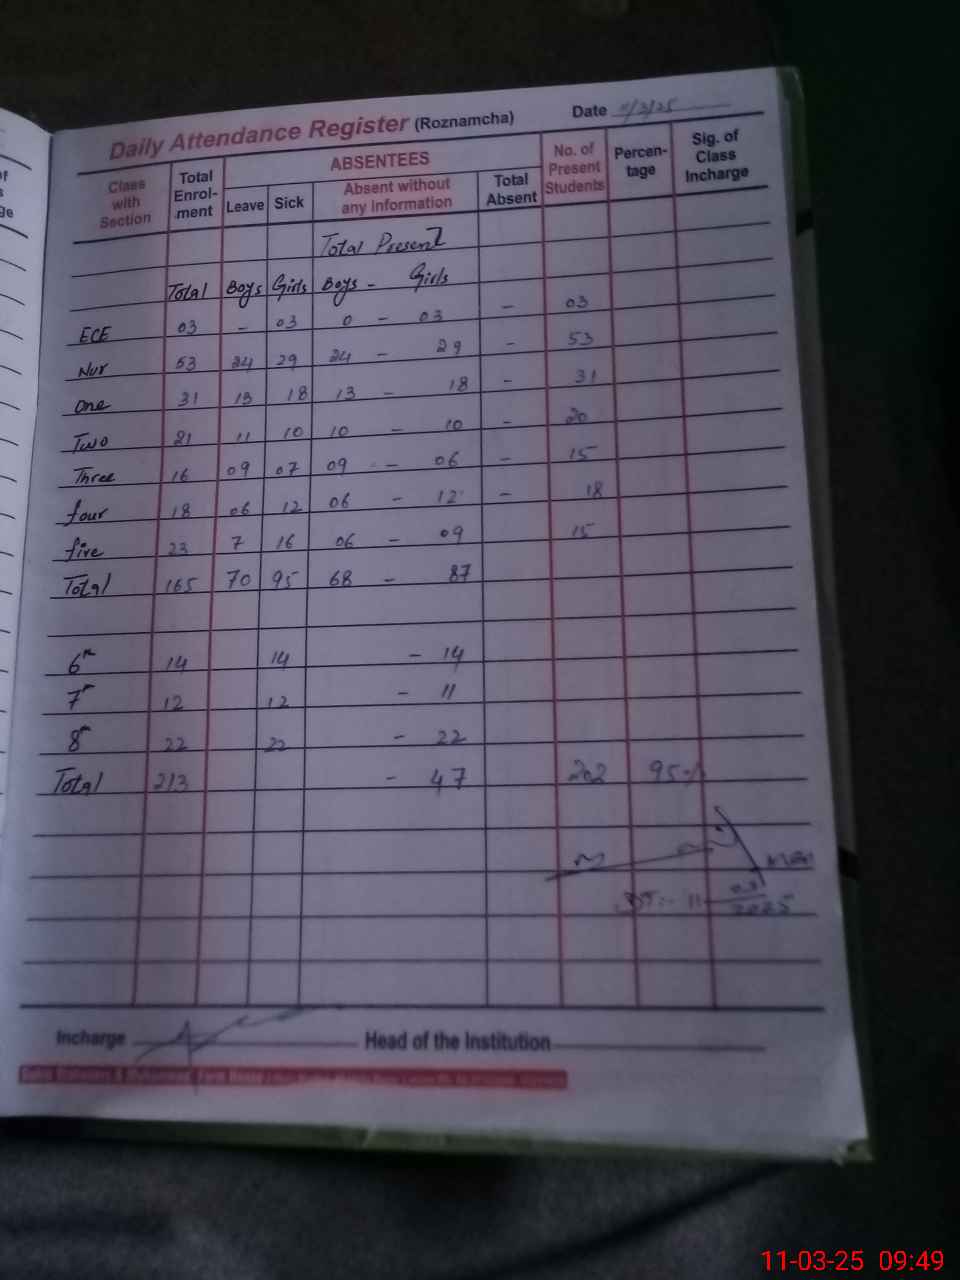 Daily Attendance Register (Roznamcha) Date 11/3/25
Class with Section Total Enrol-ment ABSENTEES Leave Sick Absent without any information Total Absent No. of Present Students Percen-tage Sig. of Class Incharge
Total Present
Total Boys Girls Boys - Girls
ECE 03 - 03 0 - 03 - 03
Nur 53 24 29 24 - 29 - 53
One 31 13 18 13 - 18 - 31
Two 21 11 10 10 - 10 - 20
Three 16 09 07 09 - 06 - 15
four 18 06 12 06 - 12 - 18
five 23 7 16 06 - 09 15
Total 165 70 95 68 - 87
6th 14 14 - 14
7th 12 12 - 11
8th 22 22 - 22
Total 213 - 47 202 95%
11 03 2025
Incharge Head of the Institution
11-03-25 09:49